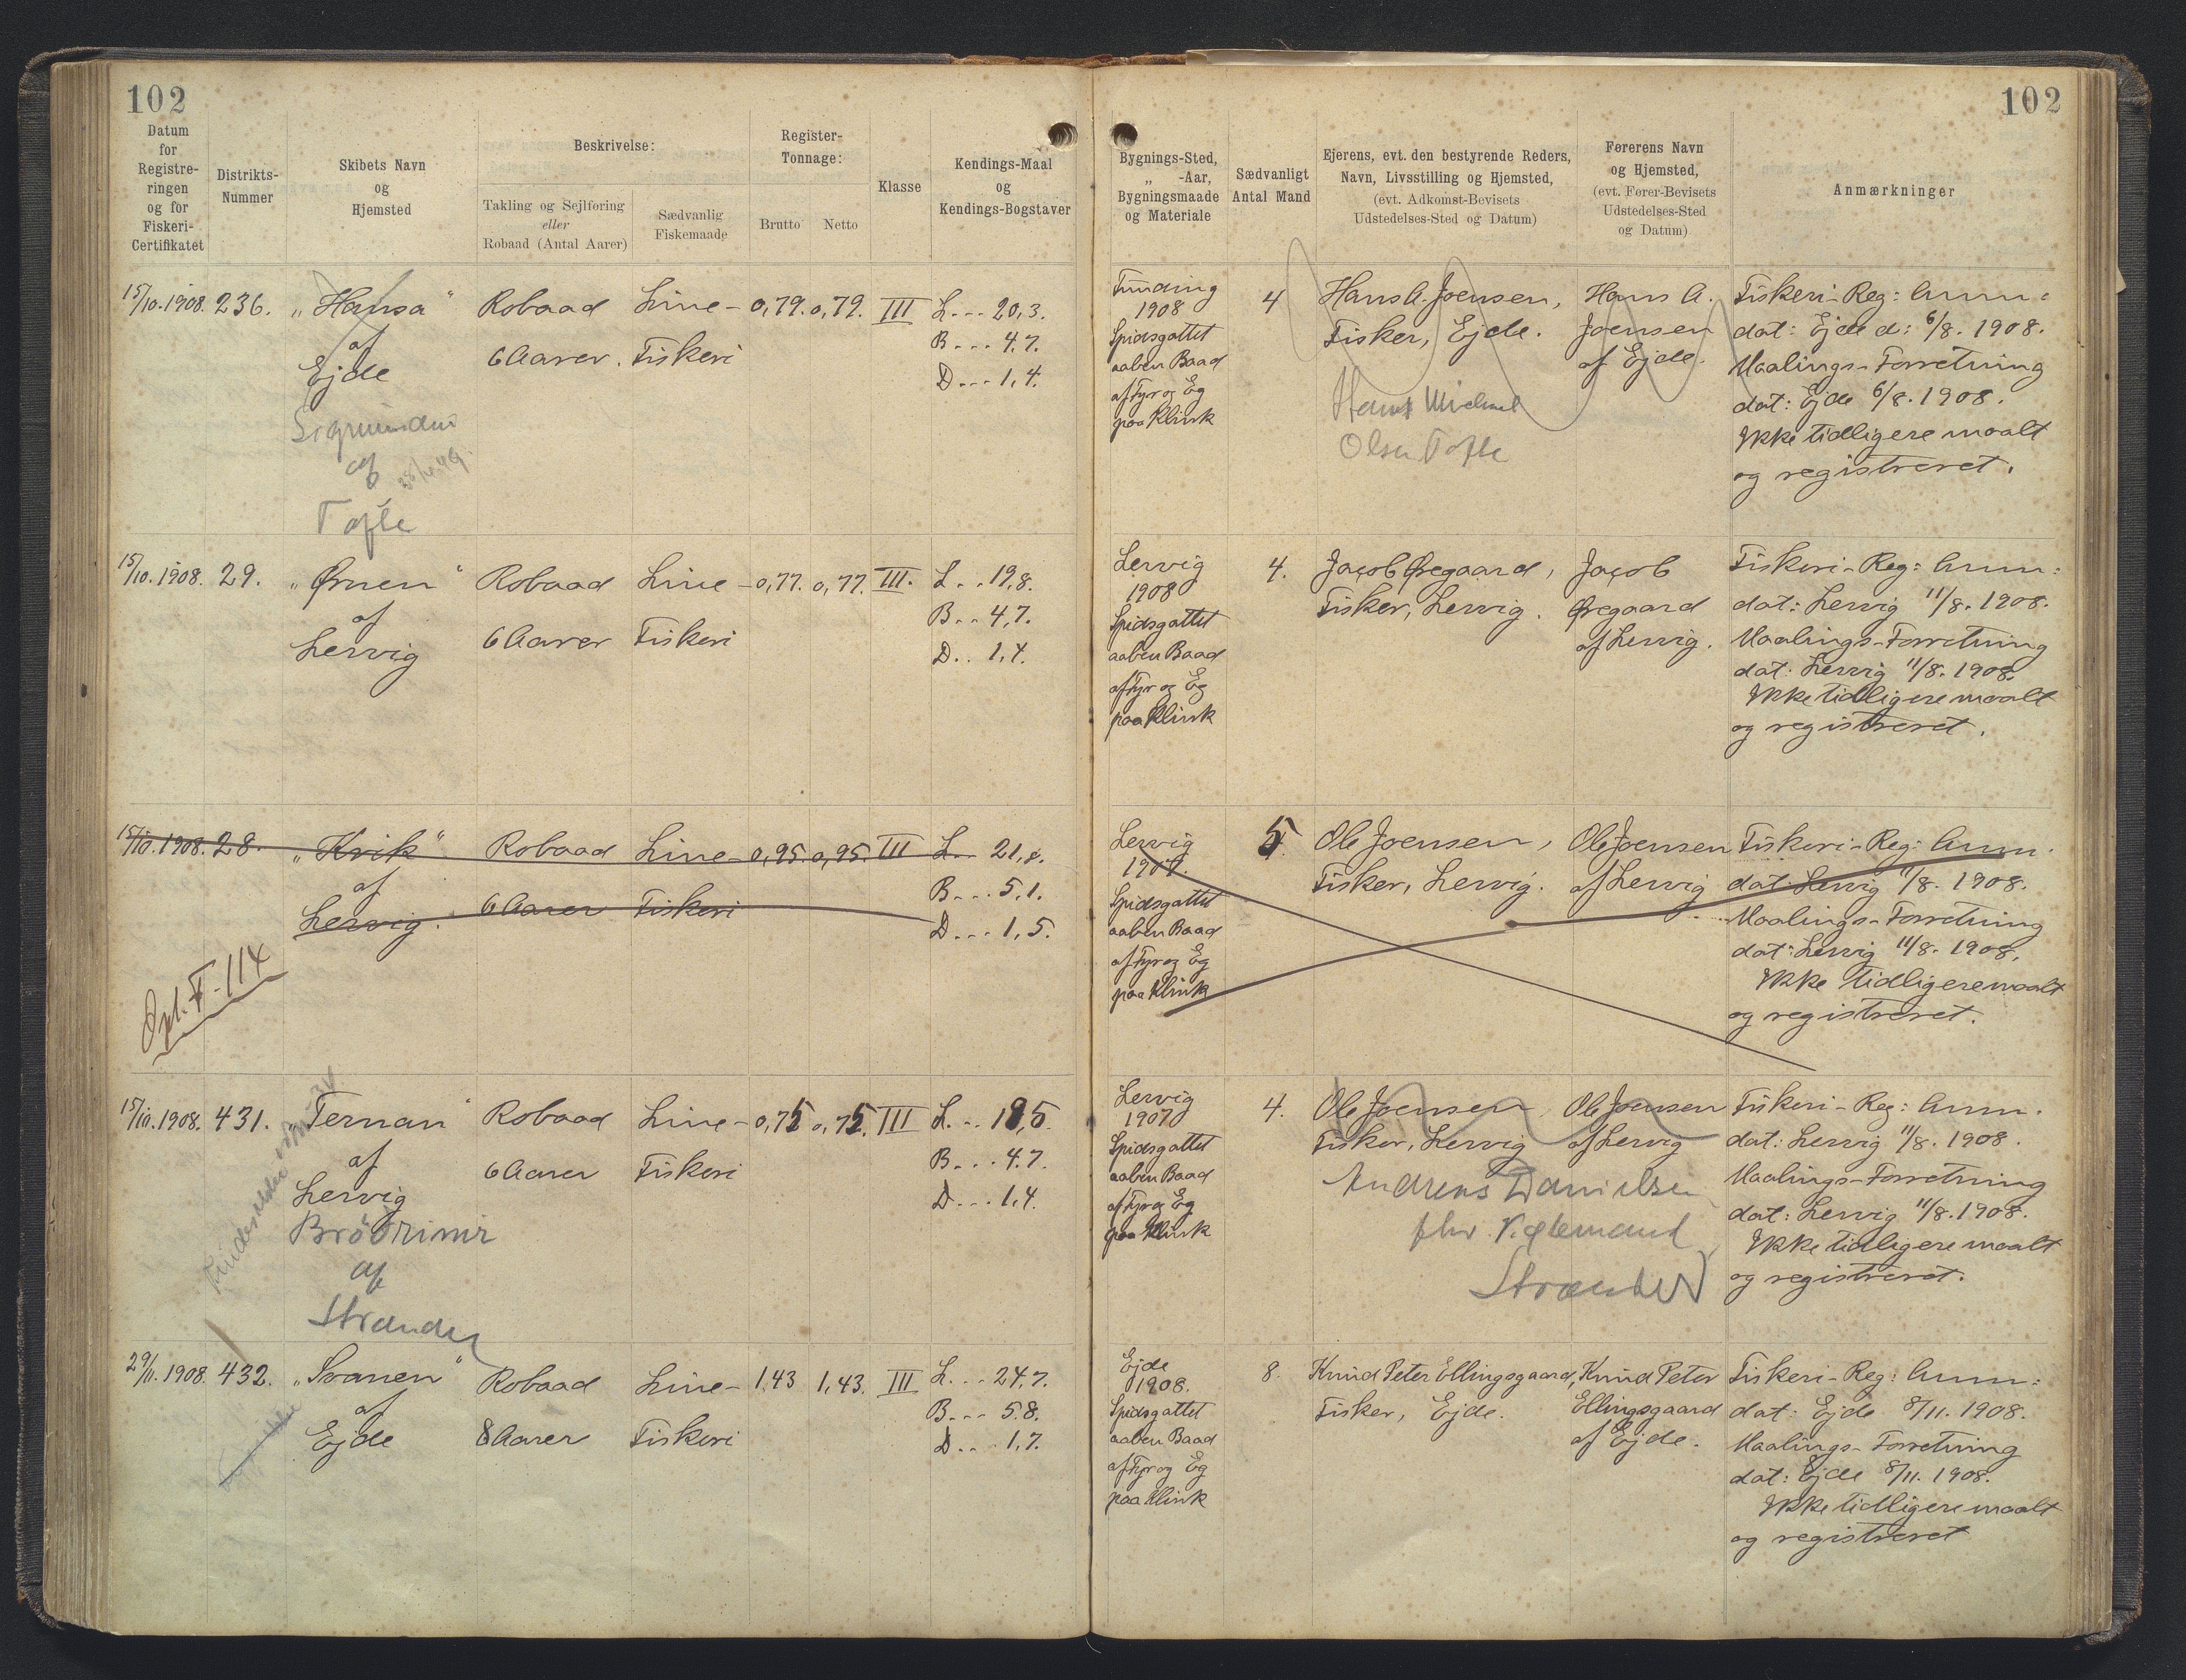 102
102
Datum for Registreringen og for Fiskeri-Certifikatet
Distrikts-Nummer
Skibets Navn og Hjemsted
Beskrivelse:
Takling og Sejlføring eller Robaad (Antal Aarer)
Sædvanlig Fiskemaade
Register-Tonnage:
Brutto
Netto
Klasse
Kendings-Maal og Kendings-Bogstaver
Bygnings-Sted, „ -Aar, Bygningsmaade og Materiale
Sædvanligt Antal Mand
Ejerens, evt. den bestyrende Reders, Navn, Livsstilling og Hjemsted, (evt. Adkomst-Bevisets Udstedelses-Sted og Datum)
Førerens Navn og Hjemsted, (evt. Fører-Bevisets Udstedelses-Sted og Datum)
Anmærkninger
15/10. 1908. 236. „Hansa" Robaad Line- 0,79. 0,79. III L--- 20,3.
af 6 Aarer. Fiskeri B--- 4,7.
Ejde D--- 1,4.
Sigmundur
af
Tofte
Funding
1908
Spidsgattet
aaben Baad
af Fyr og Eg
paa Klink
4
Hans A. Joensen,
Fisker, Ejde.
Hans Michael
Olsen Tofte
Hans A.
Joensen
af Ejde.
Fiskeri-Reg: Anm:
dat: Ejde d: 6/8. 1908.
Maalings-Forretning
dat: Ejde 6/8. 1908.
Ikke tidligere maalt
og registreret.
15/10. 1908. 29. „Ørnen" Robaad Line- 0,77. 0,77. III. L.. 19,8.
af 6 Aarer Fiskeri B.. 4,7.
Lervig D.. 1,4.
Lervig
1908
Spidsgattet
aaben Baad
af Fyr og Eg
paa Klink
4.
Jacob Øregaard,
Fisker, Lervig.
Jacob
Øregaard
af Lervig.
Fiskeri-Reg: Anm:
dat: Lervig 11/8. 1908.
Maalings-Forretning
dat: Lervig 11/8. 1908.
Ikke tidligere maalt
og registreret.
15/10. 1908. 28. „Kvik" Robaad Line- 0,95. 0,95. III L.. 21,8.
af 6 Aarer Fiskeri B... 5,1.
Lervig. D... 1,5.
114
Lervig
1907.
Spidsgattet
aaben Baad
af Fyr og Eg
paa Klink
5
Ole Joensen,
Fisker, Lervig.
Ole Joensen
af Lervig
Fiskeri-Reg: Anm.
dat: Lervig 11/8. 1908.
Maalings-Forretning
dat: Lervig 11/8. 1908.
Ikke tidligere maalt
og registreret.
15/10. 1908. 431. „Ternan" Robaad Line- 0,75 0,75. III L... 18,5
af 6 Aarer Fiskeri B... 4.7.
Lervig D... 1,4.
Brøðrinir
af
Strander
Lervig
1907
Spidsgattet
aaben Baad
af Fyr og Eg
paa Klink
4.
Ole Joensen,
Fisker, Lervig
Andreas Danielsen
Strander
Ole Joensen
af Lervig
Fiskeri-Reg: Anm.
dat: Lervig 11/8. 1908.
Maalings-Forretning
dat: Lervig 11/8. 1908.
Ikke tidligere maalt
og registreret.
29/11. 1908. 432. „Svanen" Robaad Line- 1,43 1,43. III L... 24,7.
af 8 Aarer Fiskeri B... 5.8.
Ejde D... 1,7.
Ejde
1908.
Spidsgattet
aaben Baad
af Fyr og Eg
paa Klink
8.
Knud Peter Ellingsgaard,
Fisker, Ejde.
Knud Peter
Ellingsgaard
af Ejde.
Fiskeri-Reg: Anm:
dat: Ejde 8/11. 1908.
Maalings-Forretning
dat: Ejde 8/11. 1908.
Ikke tidligere maalt
og registreret